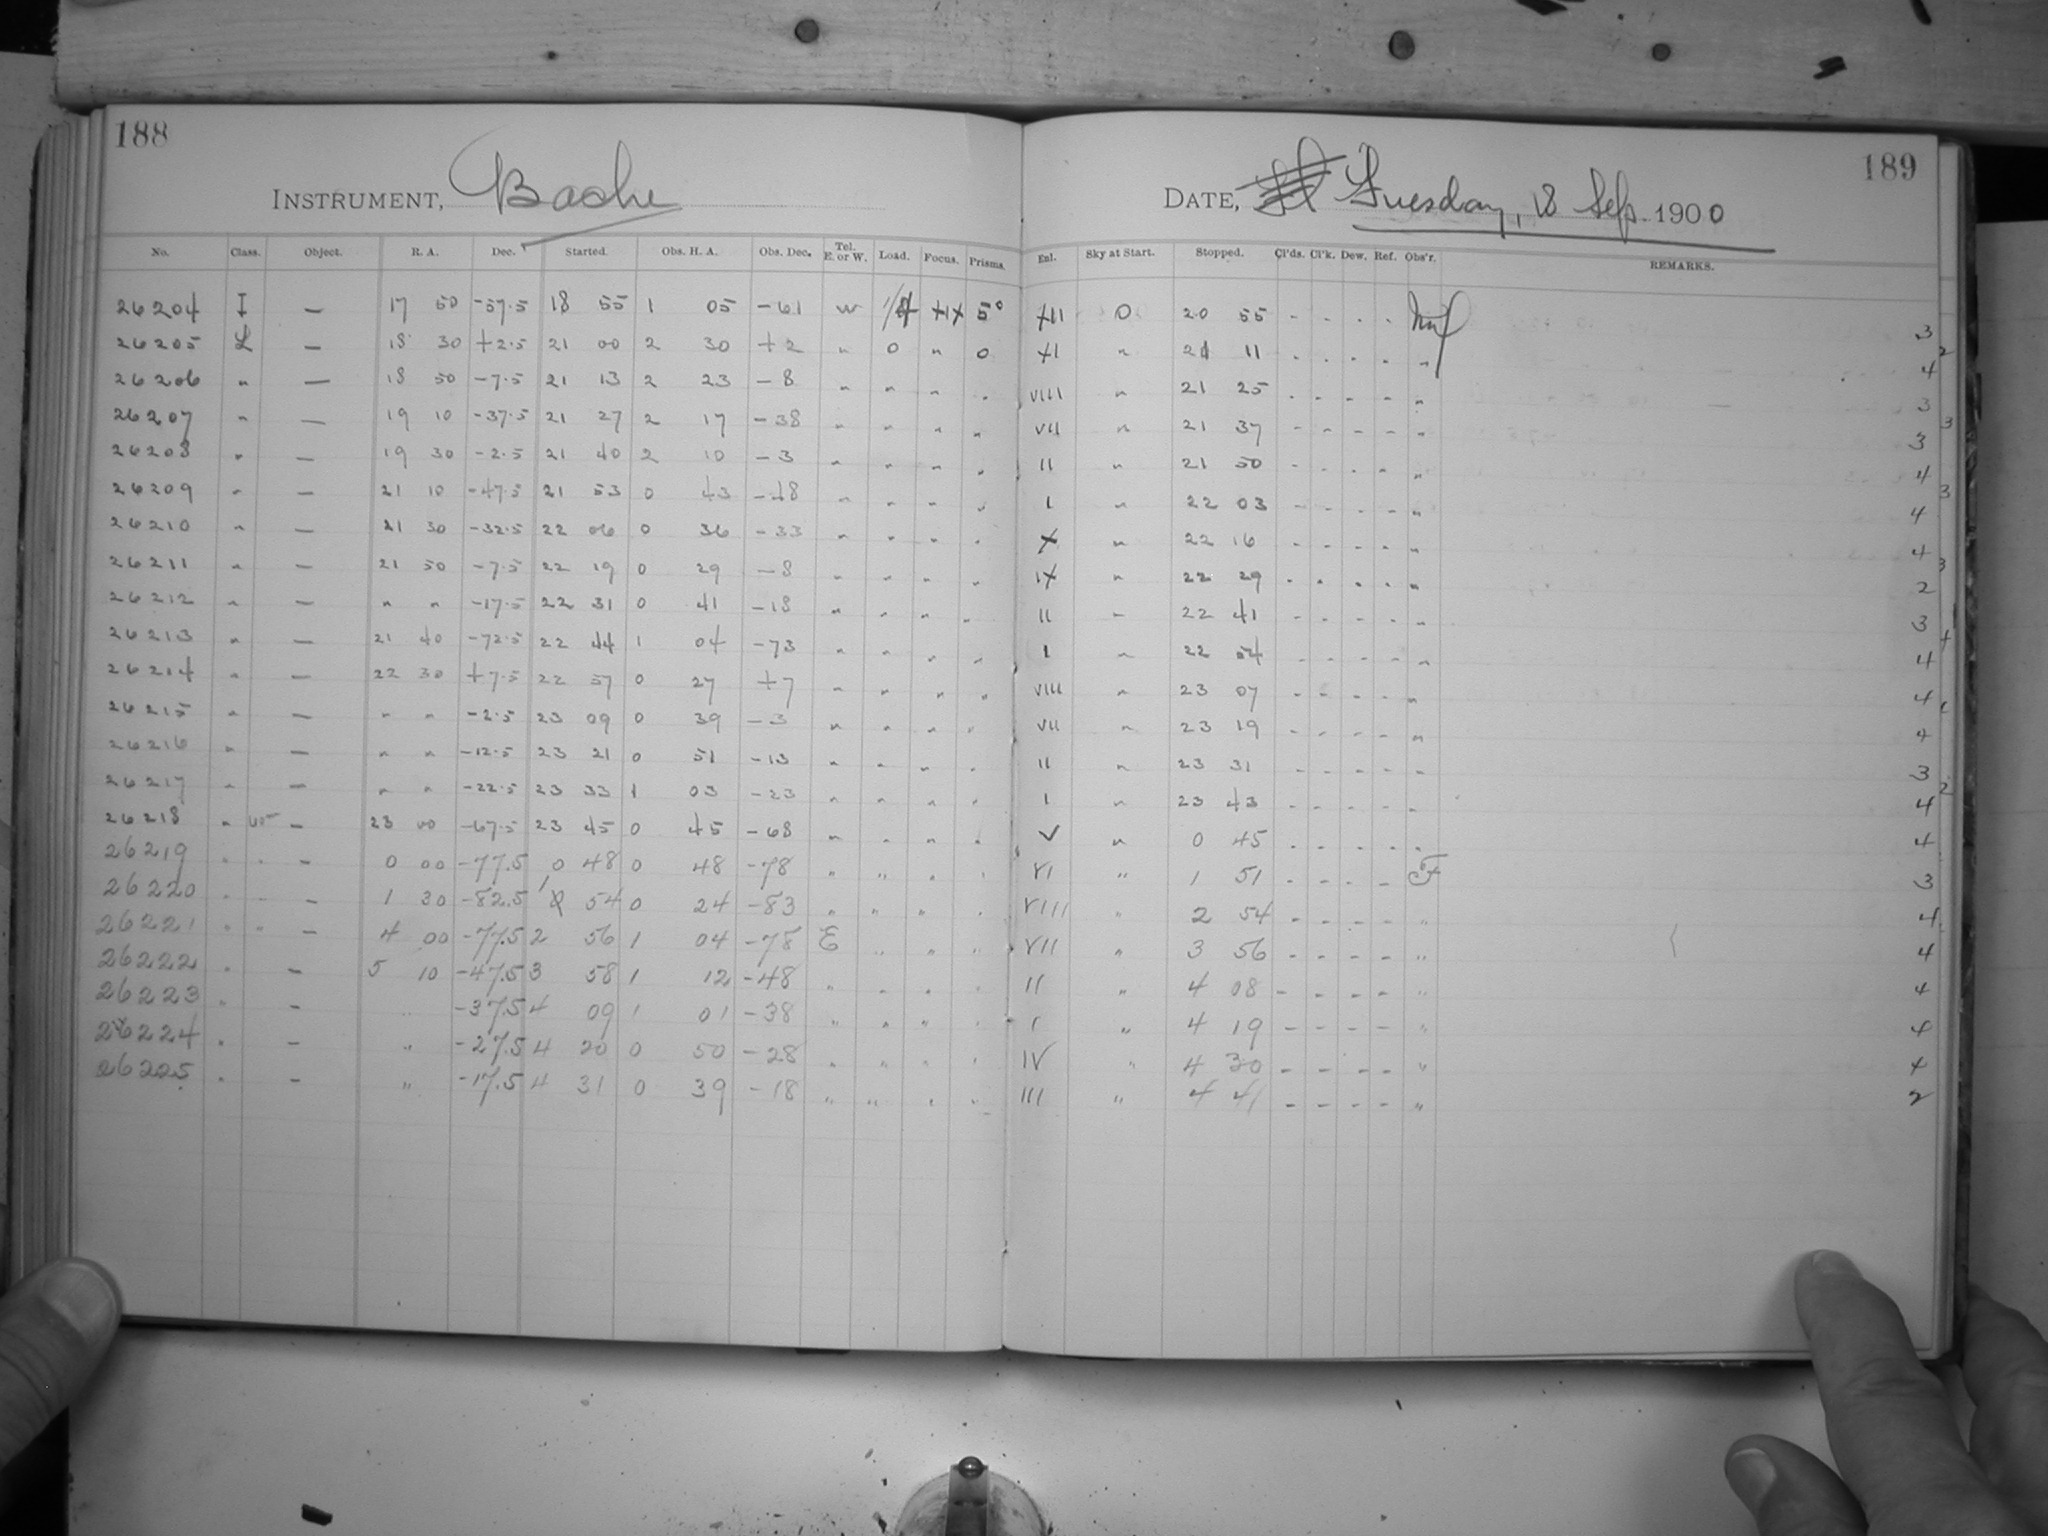 188
189
INSTRUMENT, Bache
DATE, Tuesday, 18 Sep. 1900
No. Class. Object. R. A. Dec. Started. Obs. H. A. Obs. Dec. Tel. E. or W. Load. Focus. Prisms. Enl. Sky at Start. Stopped. Cl'ds. Cl'k. Dew. Ref. Obs'r. REMARKS.
26204 I — 17 50 -57.5 18 55 1 05 -61 w 5° XII 0 20 55 - - - - 3
26205 L — 18 30 +2.5 21 00 2 30 +2 " 0 " 0 XI " 21 11 - - - - " 4
26206 " — 18 50 -7.5 21 13 2 23 -8 " " " " VIII " 21 25 - - - - " 3
26207 " — 19 10 -37.5 21 27 2 17 -38 " " " " VII " 21 37 - - - - " 3
26208 " — 19 30 -2.5 21 40 2 10 -3 " " " " II " 21 50 - - - - " 4
26209 " — 21 10 -47.5 21 53 0 43 -48 " " " " I " 22 03 - - - - " 4
26210 " — 21 30 -32.5 22 06 0 36 -33 " " " " X " 22 16 - - - - " 4
26211 " — 21 50 -7.5 22 19 0 29 -8 " " " " IX " 22 29 - - - - " 2
26212 " — " " -17.5 22 31 0 41 -18 " " " " II - 22 41 - - - - " 3
26213 " — 21 40 -72.5 22 44 1 04 -73 " " " " I " 22 54 - - - - " 4
26214 " — 22 30 +7.5 22 57 0 27 +7 " " " " VIII " 23 07 - - - - " 4
26215 " — " " -2.5 23 09 0 39 -3 " " " " VII " 23 19 - - - - " 4
26216 " — " " -12.5 23 21 0 51 -13 " " " " II " 23 31 - - - - " 3
26217 " — " " -22.5 23 33 1 03 -23 " " " " I " 23 43 - - - - " 4
26218 " — 23 00 -67.5 23 45 0 45 -68 " " " " V " 0 45 - - - - " 4
26219 " " — 0 00 -77.5 0 48 0 48 -78 " " " " VI " 1 51 - - - - F 3
26220 " " — 1 30 -82.5 1 54 0 24 -83 " " " " VIII " 2 54 - - - - " 4
26221 " " — 4 00 -77.5 2 56 1 04 -78 E " " " VII " 3 56 - - - - " 4
26222 " — 5 10 -47.5 3 58 1 12 -48 " " " " II " 4 08 - - - - " 4
26223 " — " -37.5 4 09 1 01 -38 " " " " I " 4 19 - - - - " 4
26224 " — " -27.5 4 20 0 50 -28 " " " " IV " 4 30 - - - - " 4
26225 " — " -17.5 4 31 0 39 -18 " " " " III " 4 41 - - - - " 2